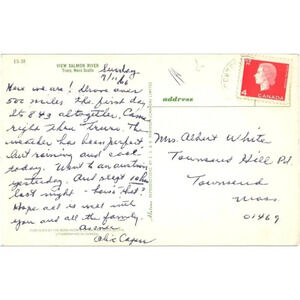 ES-38
VIEW SALMON RIVER
Truro, Nova Scotia
Sunday
9/11/66
Here we are! Drove over
500 miles the first day
Its 843 altogether. Came
right thru Truro. The
weather has been perfect
but raining and cool
today. Went to an auction
yesterday. And slept 10 hrs
last night - how's that?
Hope all is well with
you and all the family.
As ever
address
4 CANADA
Mrs. Albert White
Townsend Hill Rd
Townsend
Mass
01469